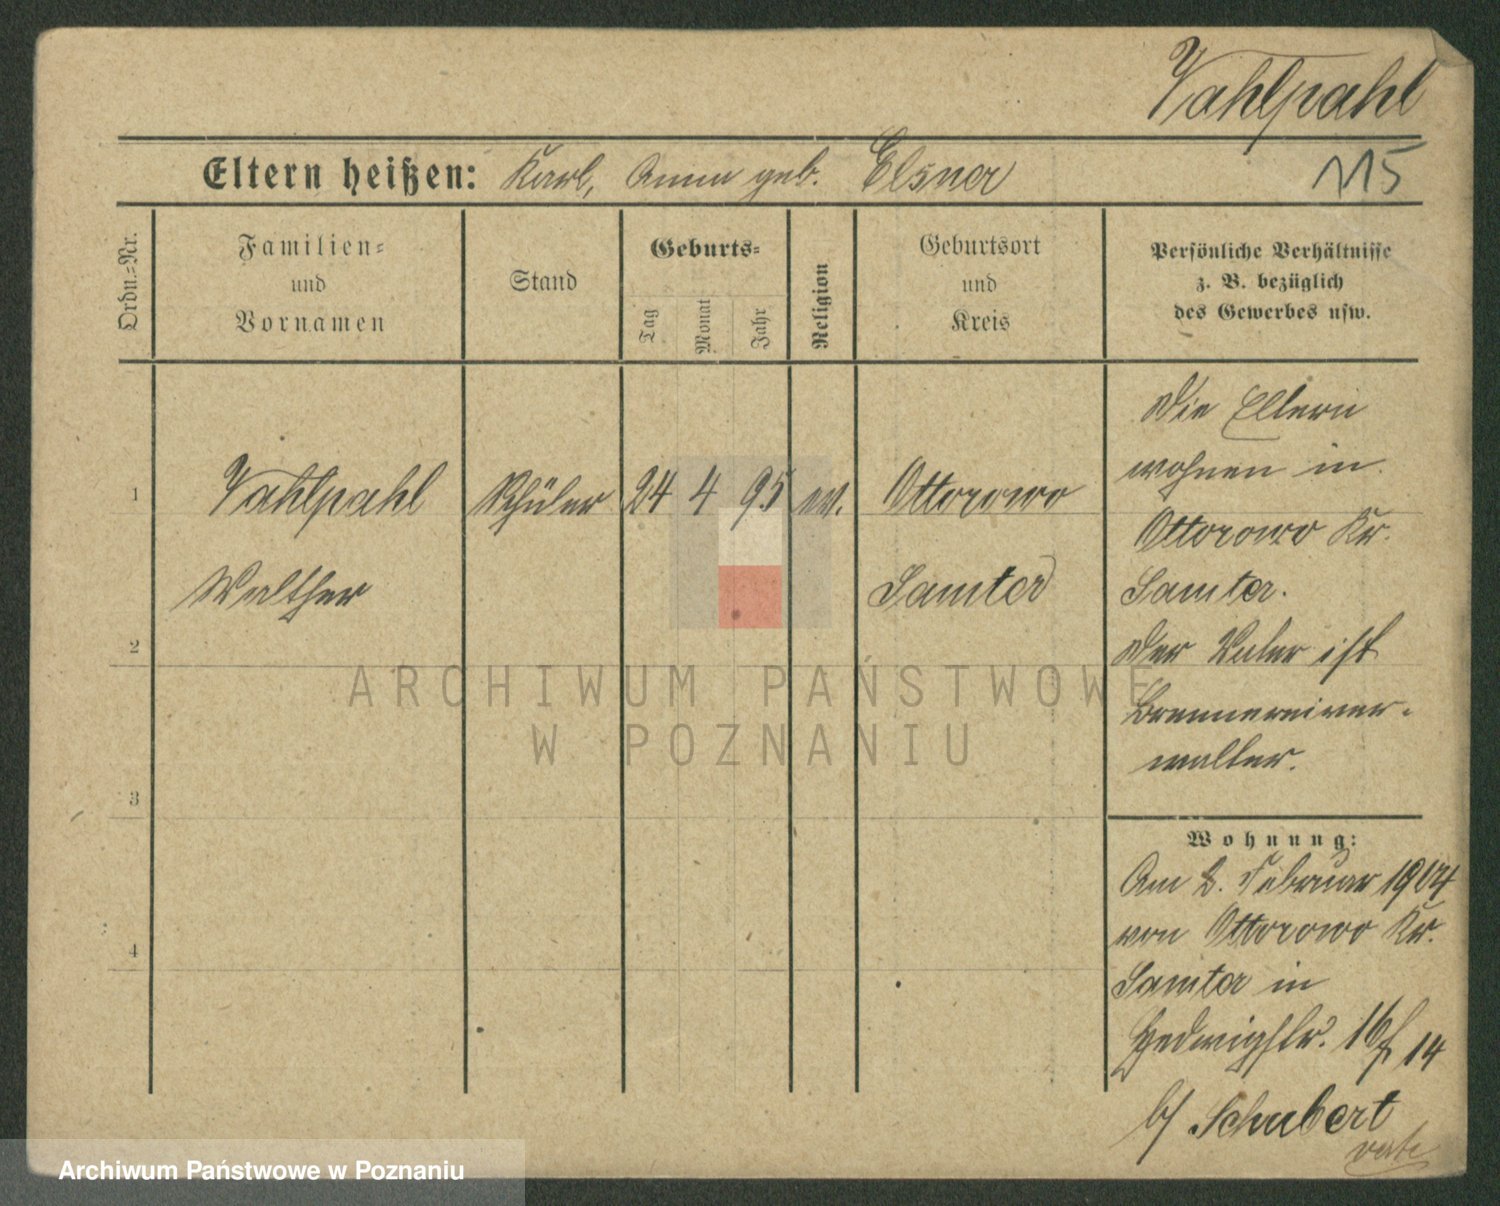 Vahlpahl
Eltern heißen: Karl, Anna geb. Elsner
115
Ordn.-Nr.
Familien-
und
Vornamen
Stand
Geburts-
Tag
Monat
Jahr
Religion
Geburtsort
und
Kreis
Persönliche Verhältnisse
z. B. bezüglich
des Gewerbes usw.
1
Vahlpahl Schüler 24 4 95 ev. Ottorowo
Walther Samter
2
3
4
Die Eltern
wohnen in
Ottorowo Kr.
Samter.
Der Vater ist
Brennereiver-
walter.
Wohnung:
Am 2. Februar 1904
von Ottorowo Kr.
Samter in
Hedwigstr. 16 14
b/ Schubert
ARCHIWUM PAŃSTWOWE
W POZNANIU
Archiwum Państwowe w Poznaniu